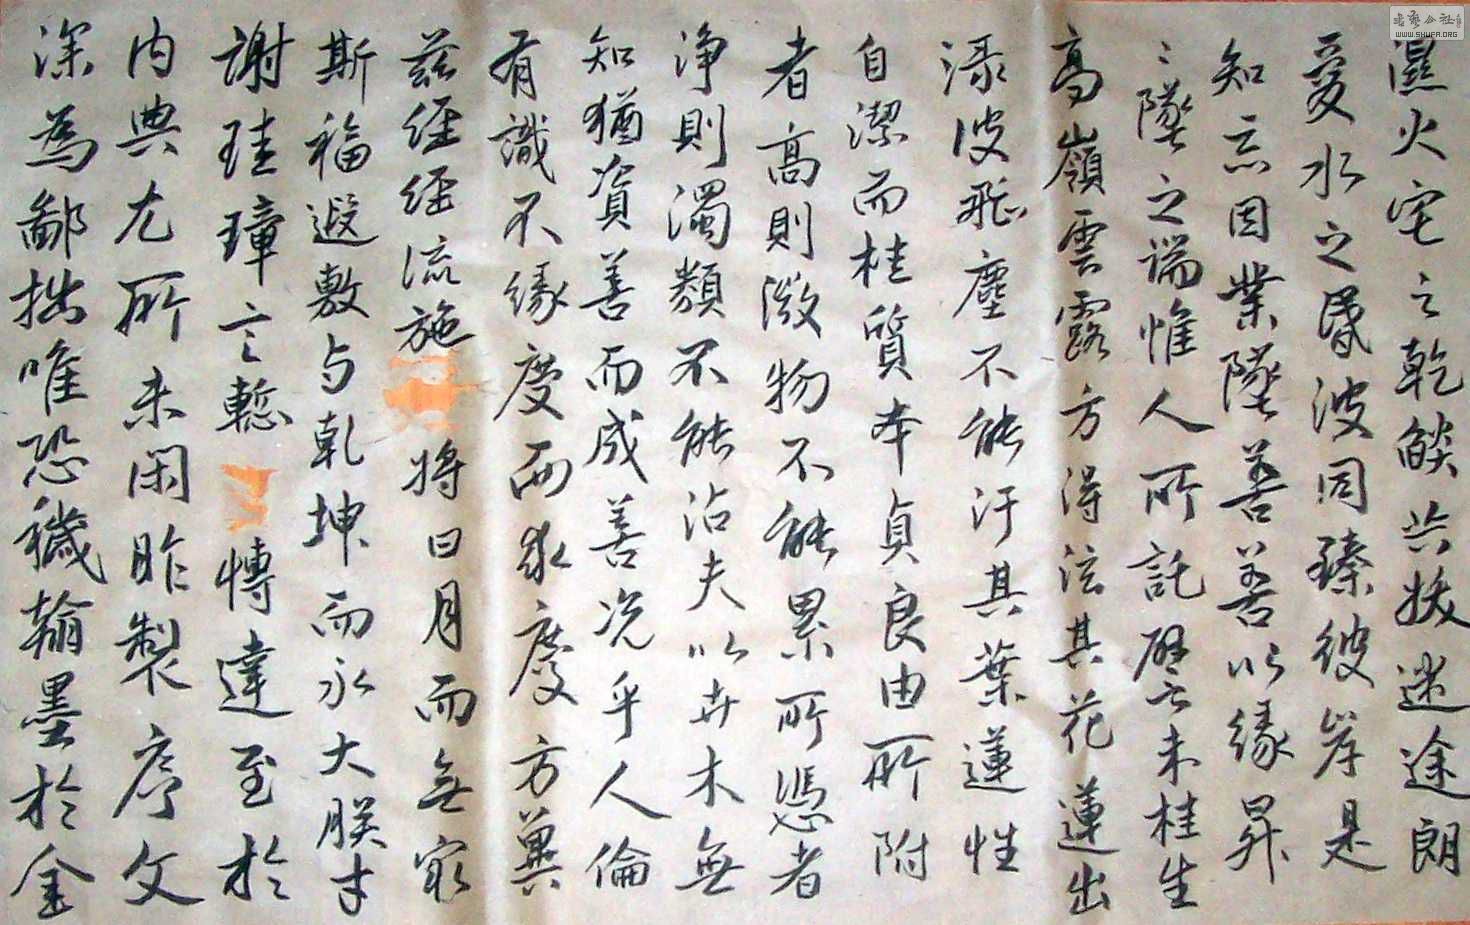 濕火宅之乾焰共拔迷途朗
愛水之昏波同臻彼岸是
知惡因業墜善善以緣昇
〻墜之端惟人所託譬夫桂生
高嶺雲露方得泫其花蓮出
淥波飛塵不能汙其葉蓮性
自潔而桂質本貞良由所附
者高則微物不能累所憑者
淨則濁類不能沾夫以卉木無
知猶資善而成善況乎人倫
有識不緣慶而求慶方冀
茲經經流施將日月而無窮
斯福遐敷与乾坤而永大朕才
謝珪璋言慙博達至於
内典尤所未閑昨製序文
深為鄙拙唯恐穢翰墨於金
WWW.SHUFA.ORG